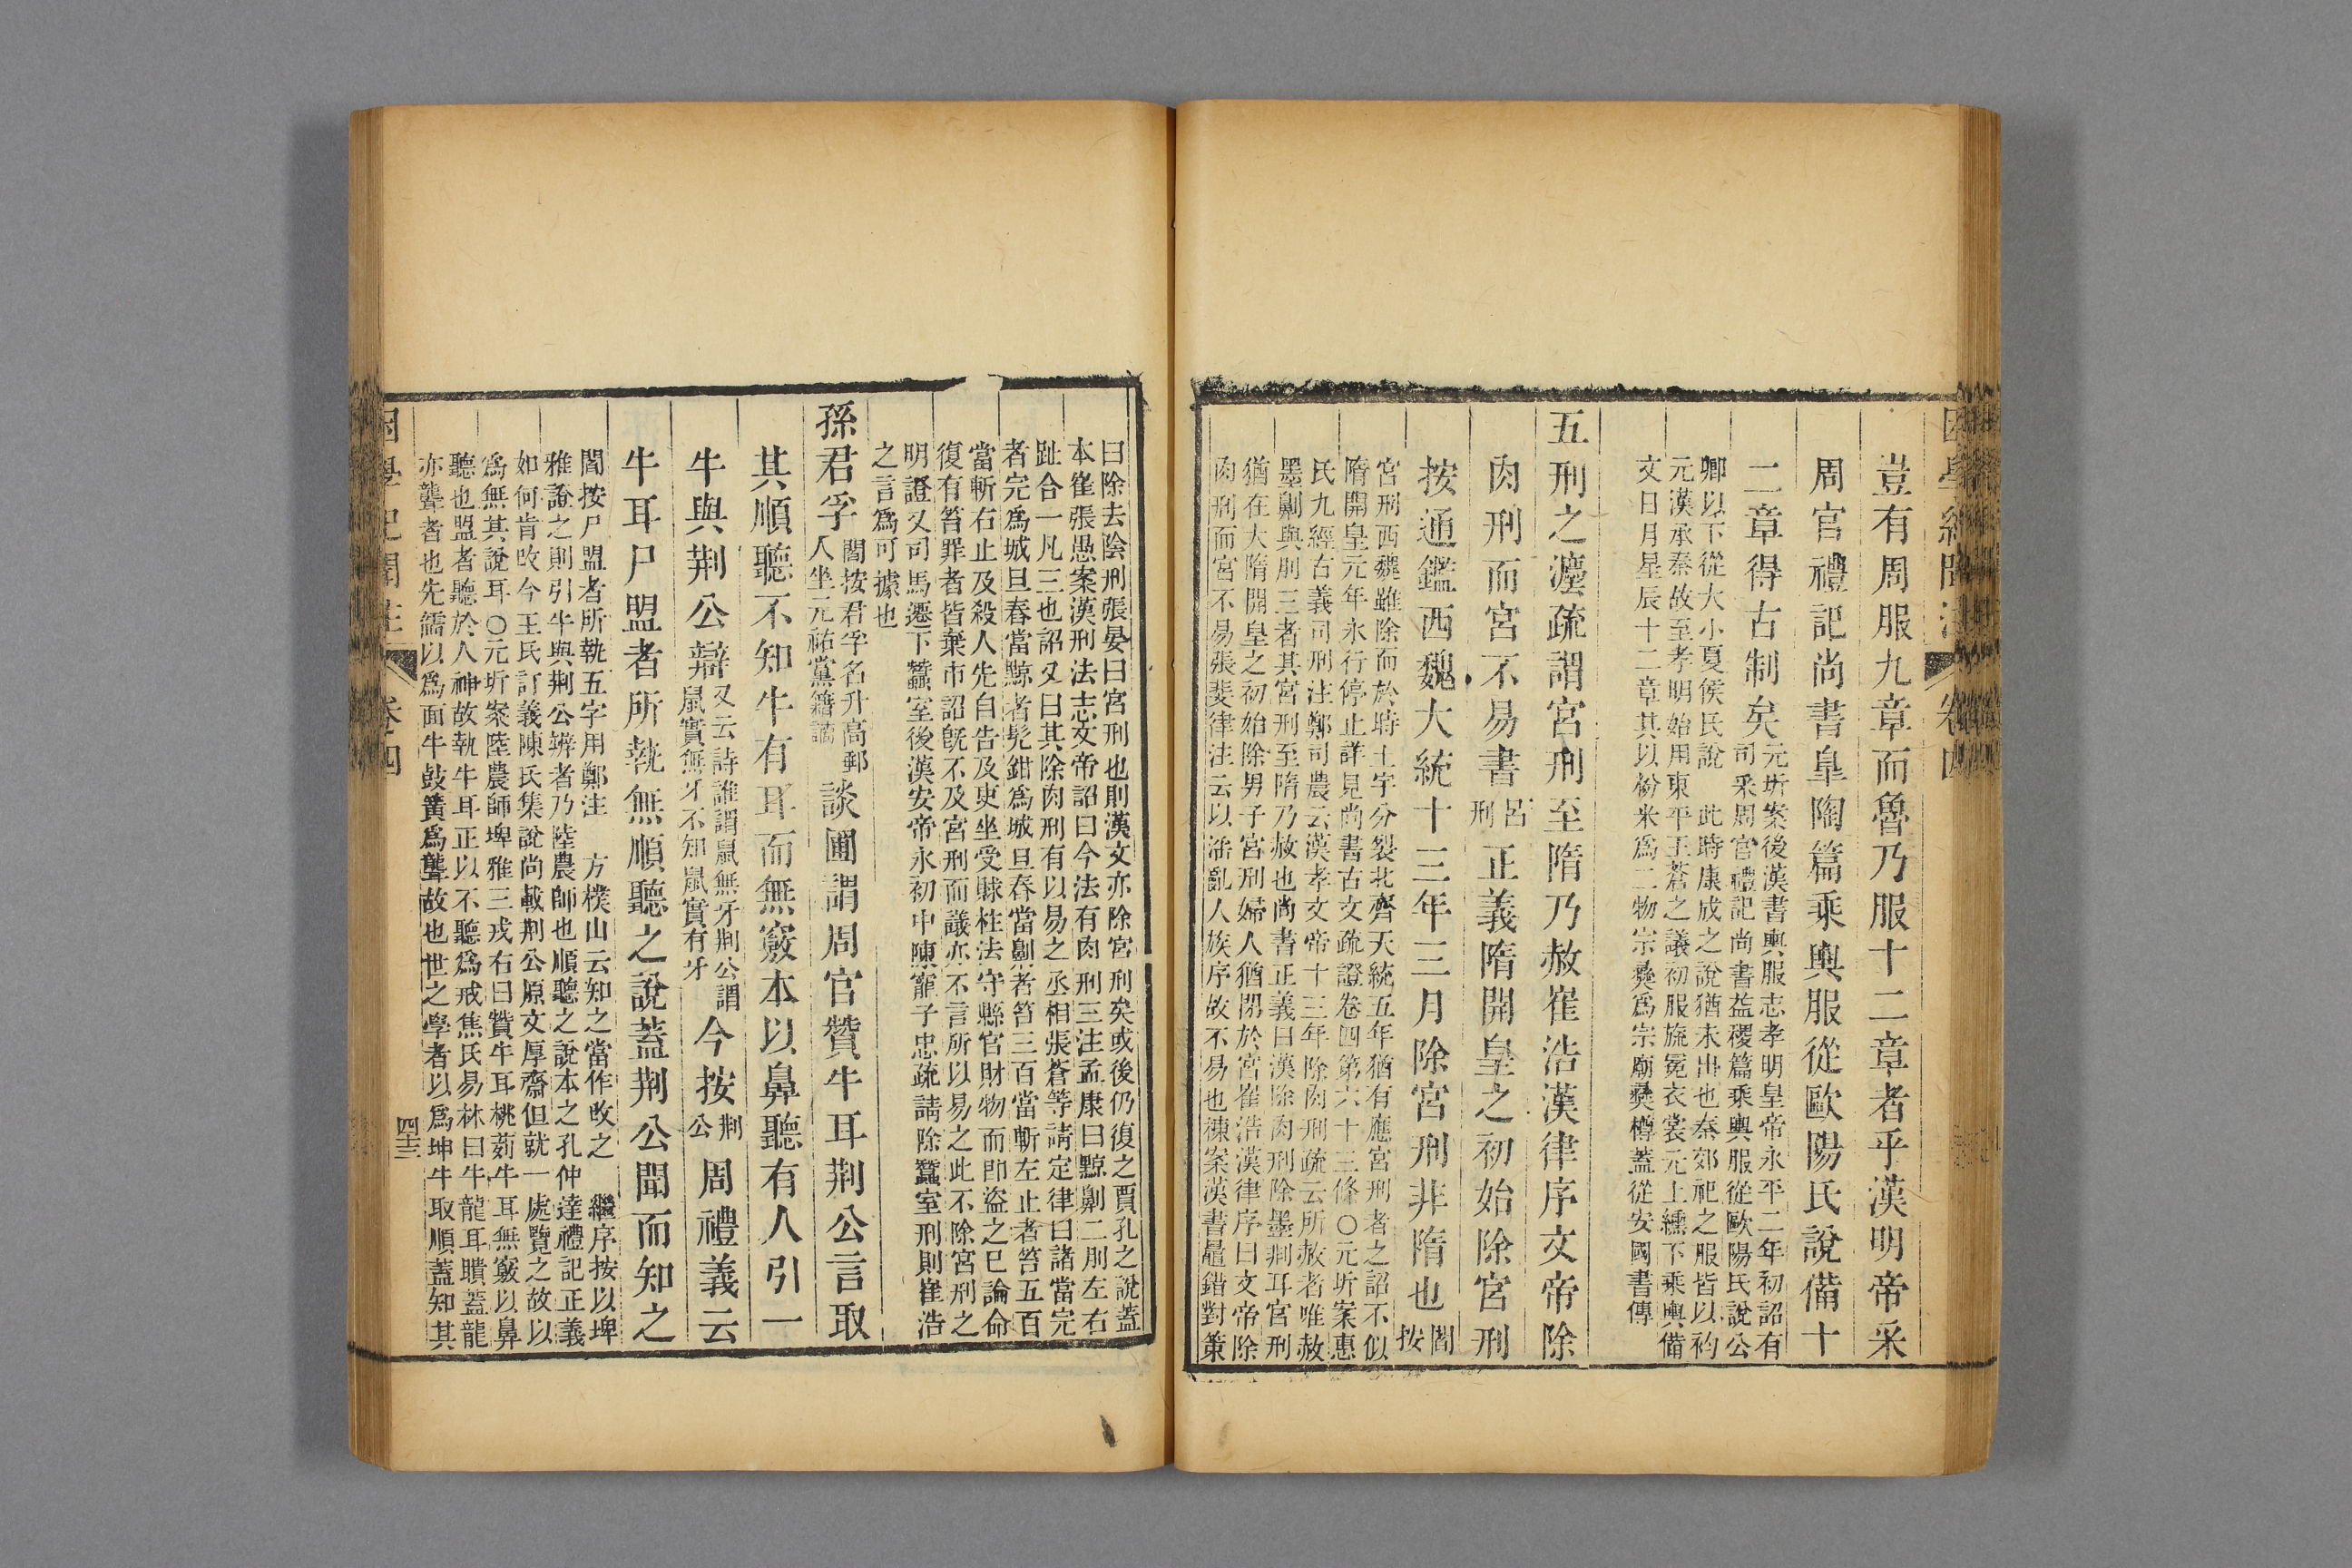 豈有周服九章而魯乃服十二章者乎漢明帝采
周官禮記尚書皐陶篇乘輿服從歐陽氏說備十
二章得古制矣元圻案後漢書輿服志孝明皇帝永平二年初詔有
司采周官禮記尚書益稷篇乘輿服從歐陽氏說公
卿以下從大小夏侯氏說 此時康成之說猶未出也秦郊祀之服皆以袀
元漢承秦故至孝明始用東平王蒼之議初服旒冕衣裳元上纁下乘輿備
文日月星辰十二章其以粉米爲二物宗彝爲宗廟彝樽蓋從安國書傳
五刑之灋疏謂宮刑至隋乃赦崔浩漢律序文帝除
肉刑而宮不易書呂
刑正義隋開皇之初始除宮刑
按通鑑西魏大統十三年三月除宮刑非隋也閻
按
宮刑西魏雖除而於時土宇分裂北齊天統五年猶有應宮刑者之詔不似
隋開皇元年永行停止詳見尚書古文疏證卷四第六十三條○元圻案惠
氏九經古義司刑注鄭司農云漢孝文帝十三年除肉刑疏云所赦者唯赦
墨劓與刖三者其宮刑至隋乃赦也尚書正義曰漢除肉刑除墨劓耳宮刑
猶在大隋開皇之初始除男子宮刑婦人猶閉於宮崔浩漢律序曰文帝除
肉刑而宮不易張斐律注云以淫亂人族序故不易也棟案漢書鼂錯對策
曰除去陰刑張晏曰宮刑也則漢文亦除宮刑矣或後仍復之賈孔之說蓋
本崔張愚案漢刑法志文帝詔曰今法有肉刑三注孟康曰黥劓二刖左右
趾合一凡三也詔又曰其除肉刑有以易之丞相張蒼等請定律曰諸當完
者完爲城旦舂當黥者髠鉗爲城旦舂當劓者笞三百當斬左止者笞五百
當斬右止及殺人先自告及吏坐受賕枉法守縣官財物而即盜之已論命
復有笞罪者皆棄市詔旣不及宮刑而議亦不言所以易之此不除宮刑之
明證又司馬遷下蠶室後漢安帝永初中陳寵子忠疏請除蠶室刑則崔浩
之言爲可據也
孫君孚閻按君孚名升高郵
人坐元祐黨籍謫談圃謂周官贊牛耳荆公言取
其順聽不知牛有耳而無竅本以鼻聽有人引一
牛與荆公辯又云詩誰謂鼠無牙荆公謂
鼠實無牙不知鼠實有牙今按荆
公周禮義云
牛耳尸盟者所執無順聽之說蓋荆公聞而知之
閻按尸盟者所執五字用鄭注 方樸山云知之當作改之 繼序按以埤
雅證之則引牛與荆公辨者乃陸農師也順聽之說本之孔仲達禮記正義
如何肯改今王氏訂義陳氏集說尚載荆公原文厚齋但就一處覽之故以
爲無其說耳○元圻案陸農師埤雅三戎右曰贊牛耳桃茢牛耳無竅以鼻
聽也盟者聽於人神故執牛耳正以不聽爲戒焦氏易林曰牛龍耳聵蓋龍
亦聾者也先儒以爲面牛鼓簧爲聾故也世之學者以爲坤牛取順蓋知其
困學紀聞注 卷四 四十三